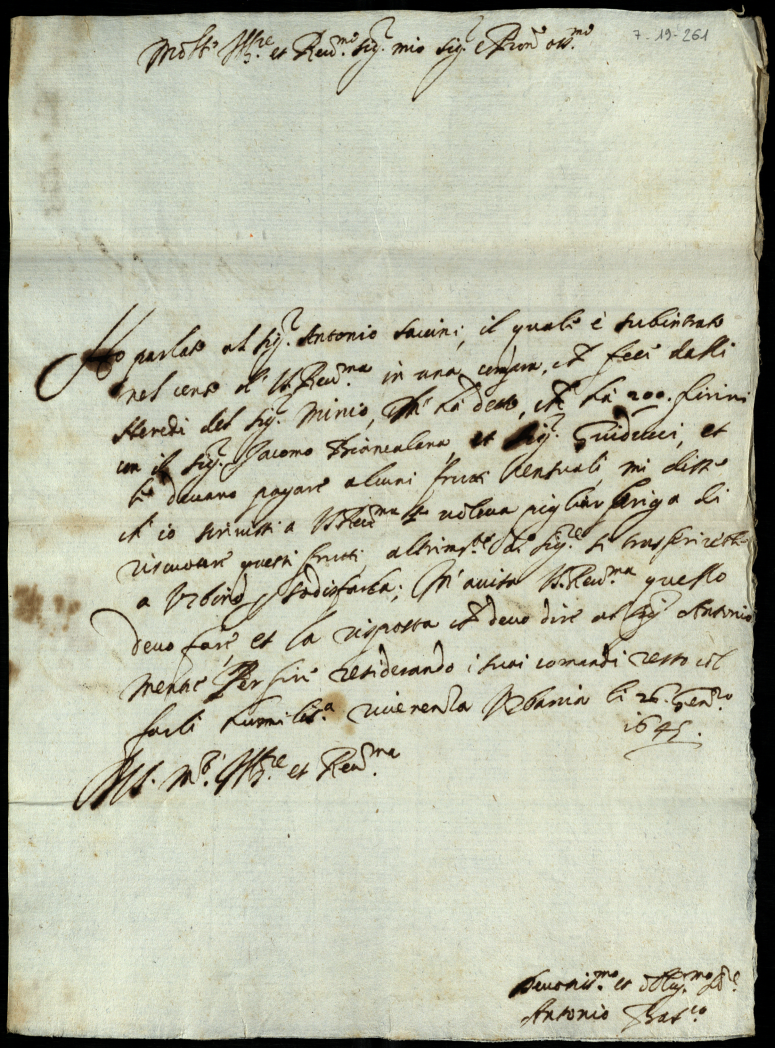 7-19-261
Molt' Ill.re et Reud.mo Sig.r mio Sig.r e Pron' oss.mo
Ho parlato al Sig.r Antonio Saccini, il quale è subintrato
nel censo di V.S. Reud.ma in una, che fece dalli
Heredi del Sig.r Minio, M' hà detto, che hà 200. fiorini
con il Sig.r Jacomo, et Sig.r Guiducci, et
li devano pagare alcuni frutti, mi disse
ch' io scrivessi a V.S. Reud.ma se voleva pigliar briga di
riscuotere questi frutti, altrim.te d.o Sig.re si trasferirebbe
a Urbino; M' avisa V.S. Reud.ma quello
devo fare, et la risposta che devo dire al Sig.r Antonio
mentre Per fine desiderando i suoi comandi resto col
farli humiliss.a riverenza Urbania li 26 Genn.ro
1645.
D.V.S. M.to Ill.re et Reud.ma
Devotiss.mo et Oblig.mo S.re
Antonio